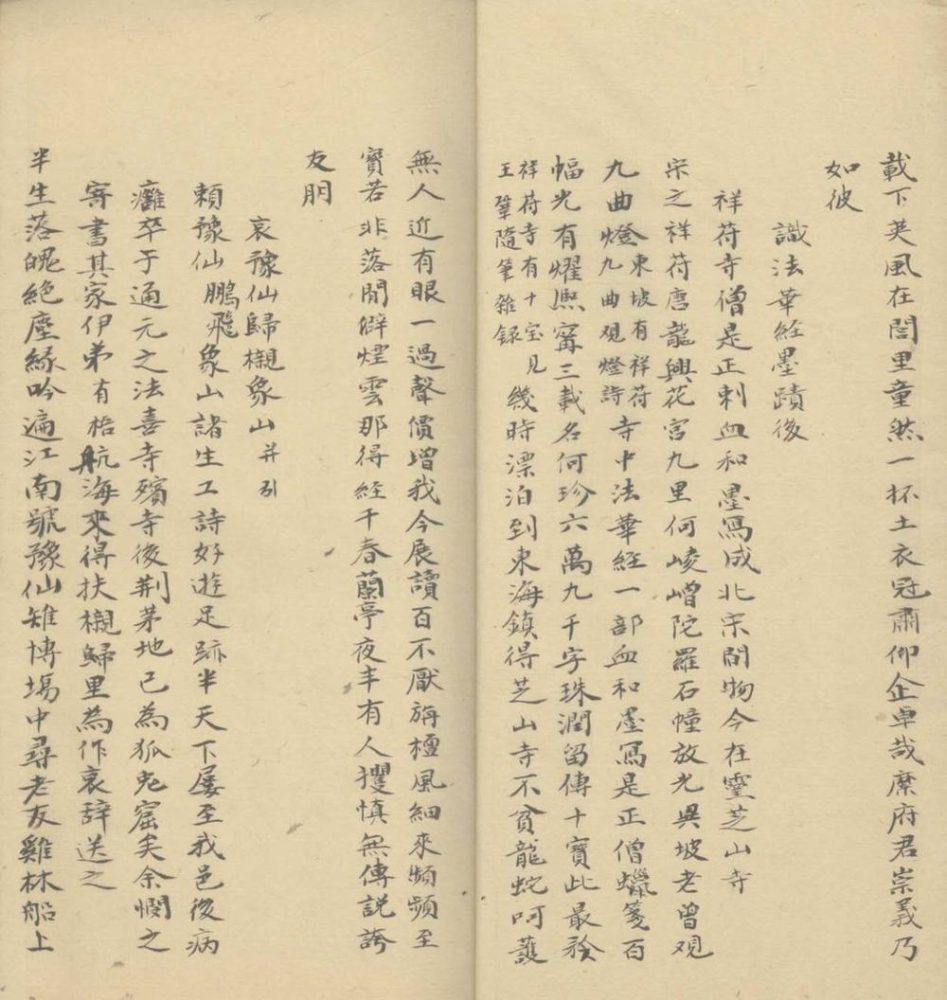 載下英風在閭里童然一抔土衣冠肅仰企卓哉糜府君崇義乃
如彼
識法華經墨蹟後
祥符寺僧是正刺血和墨寫成北宋間物今在靈芝山寺
宋之祥符唐龍興花宮九里何崚嶒陀羅石幢放光異坡老曾观
九曲燈東坡有祥符九曲观燈詩寺中法華經一部血和墨寫是正僧蠟箋百
幅光有耀熙寧三載名何珍六萬九千字珠潤留傳十寶此最矜
祥符寺有十宝見王鞏隨筆雜録幾時漂泊到東海鎮得芝山寺不貧龍蛇呵護
無人近有眼一過聲價增我今展讀百不厭旃檀風細來頻頻至
寶若非落閒僻煙雲那得經千春蘭亭夜半有人攫慎無傳説誇
友朋
哀豫仙歸櫬象山并引
賴豫仙鵬飛象山諸生工詩好遊足跡半天下屡至我邑後病
癱卒于通元之法喜寺殯寺後荆茅地已為狐兎窟矣余憫之
寄書其家伊弟有梧航海來得扶櫬歸里為作哀辞送之
半生落魄絶塵緣吟遍江南號豫仙雉博場中尋老友雞林船上